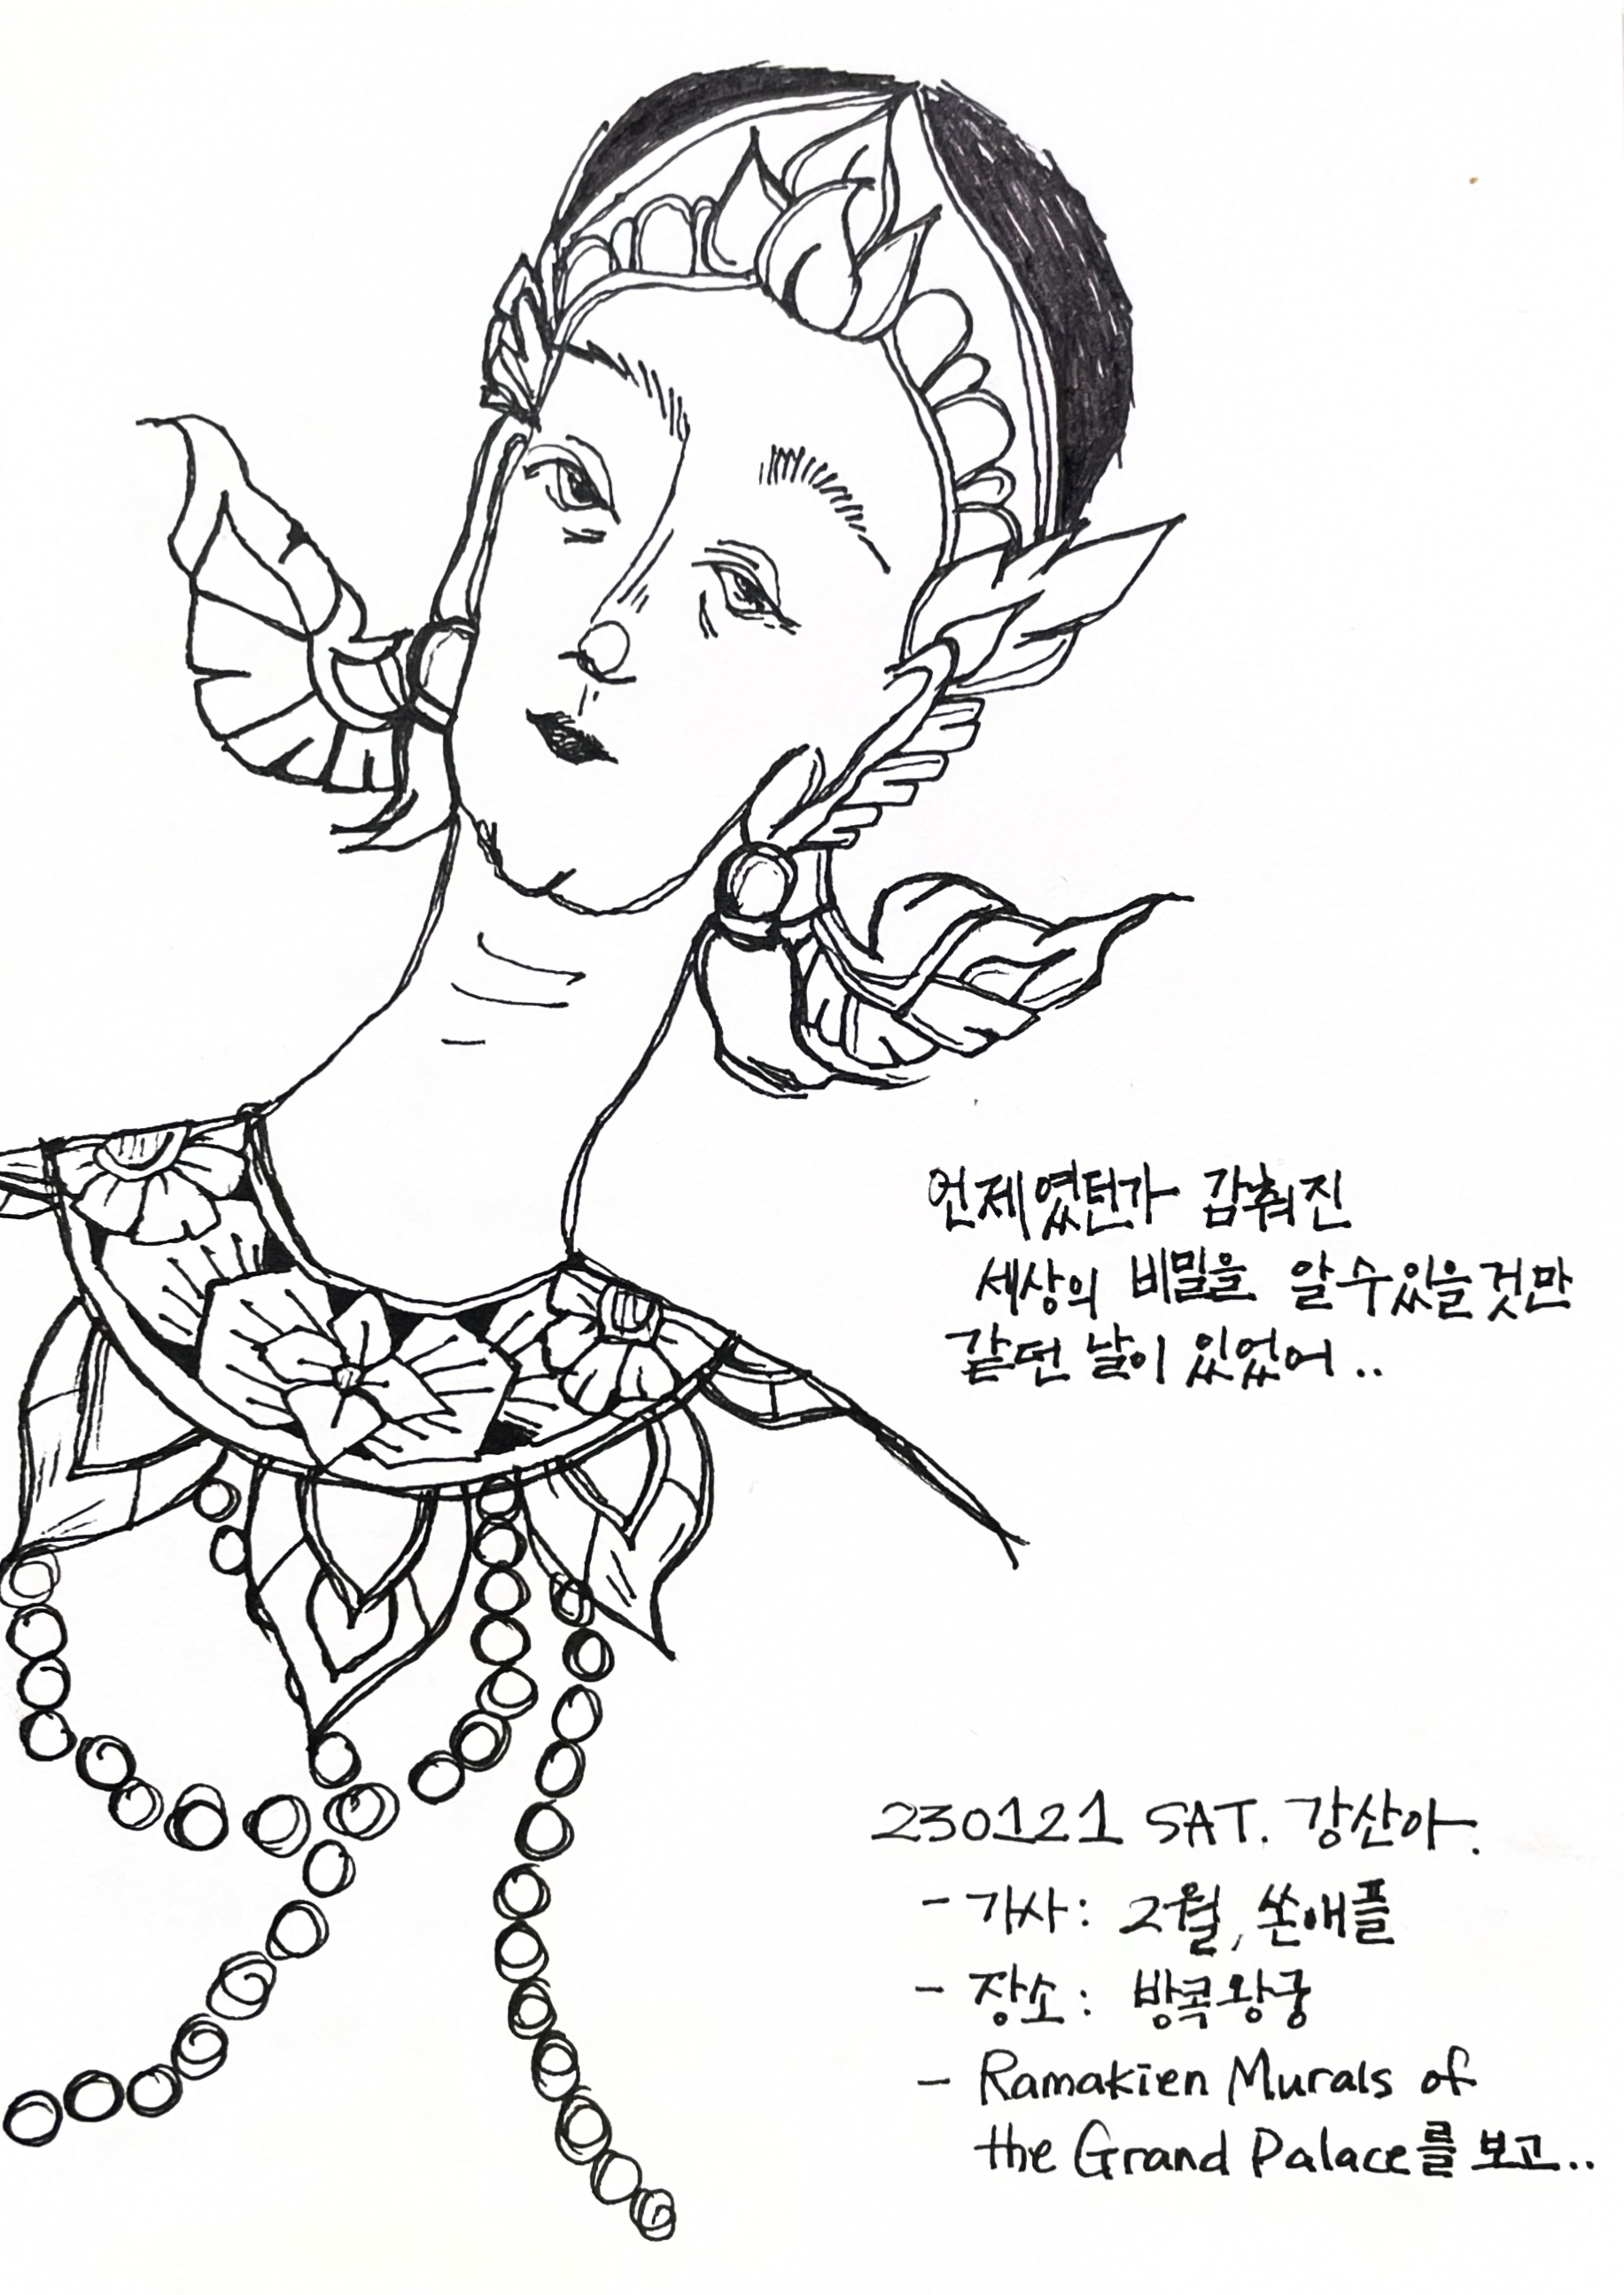 언제였던가 감춰진
세상의 비밀을 알 수 있을 것만
같던 날이 있었어..
230121 SAT. 강산아.
- 가사: 2월, 쏜애플
- 장소: 방콕왕궁
- Ramakien Murals of
the Grand Palace를 보고..